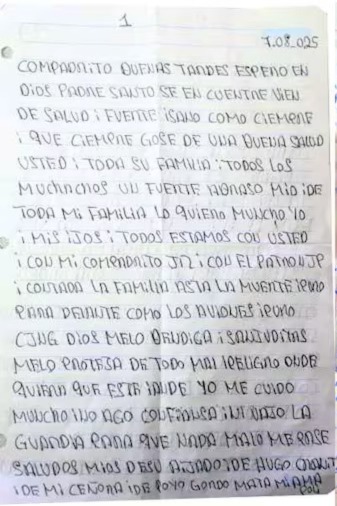 1
7.08.025
COMPADRITO BUENAS TARDES ESPERO EN
DIOS PADRE SANTO SE EN CUENTRE VIEN
DE SALUD I FUERTE ISANO COMO CIEMPRE
I QUE CIEMPRE GOSE DE UNA BUENA SALUD
USTED I TODA SU FAMILIA I TODOS LOS
MUCHACHOS UN FUERTE ABRASO MIO IDE
TODA MI FAMILIA LO QUIERO MUNCHO YO
I MIS IJOS I TODOS ESTAMOS CON USTED
I CON MI COMPADRITO I CON EL PATRON JP
I CONTODA LA FAMILIA ASTA LA MUERTE IPURO
PARA DELANTE COMO LOS AVIONES IPURO
CJNG DIOS MELO BENDIGA ISANJUDITAS
MELO PROTEJA DE TODO MAL IPELIGRO ONDE
QUIERA QUE ESTE IANDE YO ME CUIDO
MUNCHO INO AGO CONFIANSA INI VAJO LA
GUARDIA PARA QUE NADA MALO ME PASE
SALUDOS MIOS DESU AIJADO IDE HUGO
IDE MI CEÑORA IDE POYO GORDO MATA MI AMA